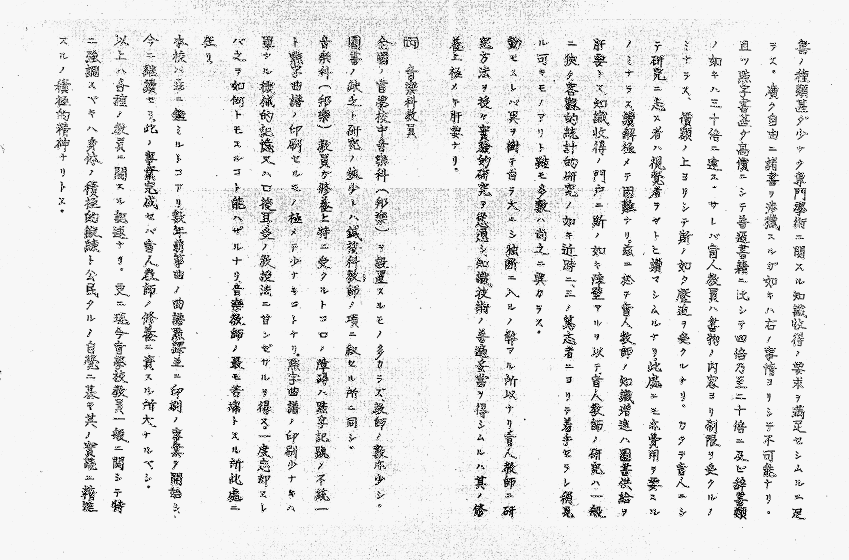 書ノ種類甚ダ少ック專門學術ニ關スル知識收得ノ要求ヲ滿足セシムルニ足
ラズ。廣ク自由ニ諸書ヲ渉獵スルガ如キハ右ノ事情ヨリシテ不可能ナリ。
且ツ點字書甚ダ高價ニシテ普通書籍ニ比シテ四倍乃至二十倍ニ及ビ辭書類
ノ如キハ三十倍ニ達ス。サレバ盲人敎員ハ書物ノ内容ヨリ制限ヲ受クルノ
ミナラズ、價額ノ上ヨリシテ斯ノ如ク壓迫ヲ受クルナリ。カクテ盲人ニシ
テ研究ニ志ス者ハ視覺者ヲヤトヒ讀マシムルナリ此處ニモ亦費用ヲ要スル
ノミナラズ、讀解極メテ困難ナリ。茲ニ於テ盲人敎師ノ知識增進ハ圖書供給ヲ
肝要トス知識收得ノ門戸ニ斯ノ如キ障壁アルヲ以テ盲人敎師ノ研究ハ一般
ニ狹ク客觀的統計的研究ノ如キ近時二、三ノ篤志者ニヨリテ着手セラレ稍見
ル可キモノアリト雖モ多數ハ尚之ニ與カラズ。
動モスレバ異ヲ樹テ自ラ大ニシ独斷ニ入ルノ弊アル所以ナリ盲人敎師ニ研
究方法ヲ授ケ實驗的研究ヲ慫慂シ知識技術ノ普遍妥當ヲ得シムルハ其ノ修
養上極メテ肝要ナリ。
四　音樂科敎員
全國ノ盲學校中音樂科(邦樂)ヲ設置スルモノ多カラズ敎師ノ數亦少シ。
圖書ノ缺乏ト研究ノ狹少トハ鍼按科敎師ノ項ニ敍セル所ニ同ジ。
音樂科(邦樂)敎員ガ修養上特ニ受クルトコロノ障碍ハ點字記號ノ不統一
ト點字曲譜ノ印刷セルモノ極メテ少ナキコトナリ。點字曲譜ノ印刷少ナキハ
單ナル機械的記憶又ハ口授耳受ノ敎授法ニ甘ンゼザルヲ得ズ一度忘却スレ
バ之ヲ如何トモスルコト能ハザルナリ音樂敎師ノ最モ苦痛トスル所此處ニ
在リ。
本校ハ茲ニ鑑ミルトコアリ數年前箏曲ノ曲譜點譯並ニ印刷ノ事業ヲ開始シ、
今ニ繼續セリ。此ノ事業完成セバ盲人敎師ノ修養ニ資スル所大ナルベシ。
以上ハ各種ノ敎員ニ關スル敍述ナリ。更ニ現今盲學校敎員一般ニ關シテ特
ニ强調スベキハ身體ノ積極的鍛錬ト公民タルノ自覺ニ基キ其ノ實踐ニ精進
スルノ積極的精神ナリトス。